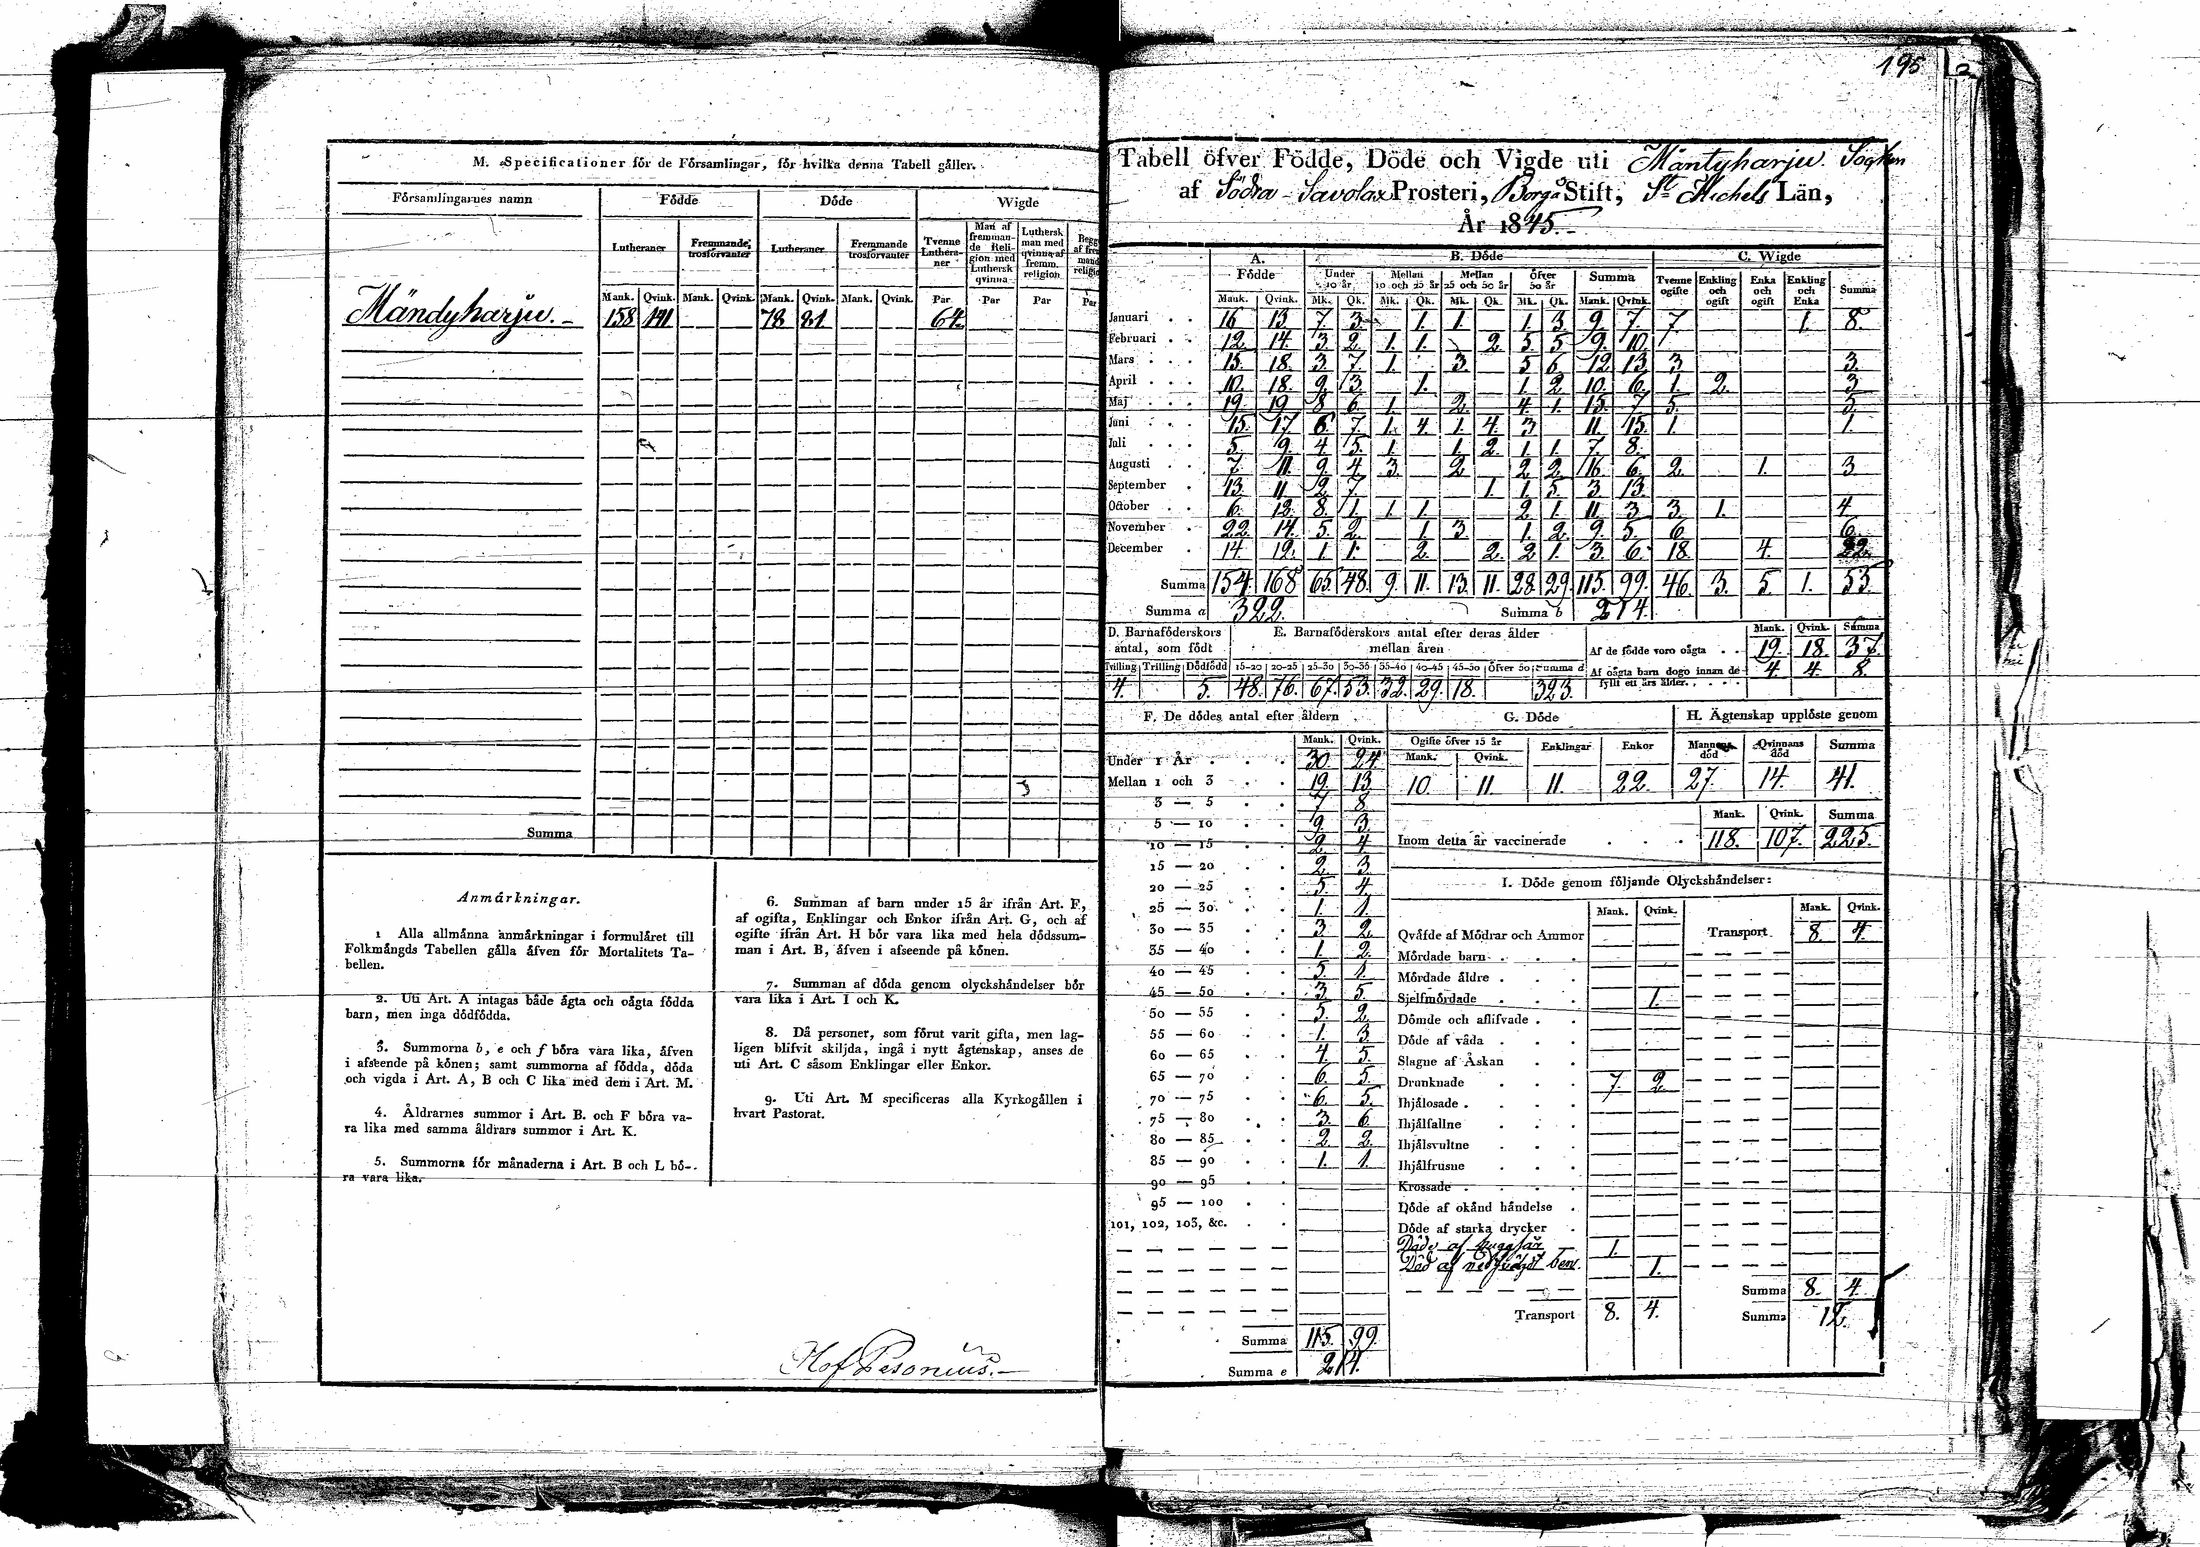 M. Specificationer för de Församlingar, för hvilka denna Tabell gäller.
Församlingarnes namn Födde Döde Wigde
Lutheraner Fremmande trosförvanter Lutheraner Fremmande trosförvanter Tvenne Lutheraner Man af fremmande Religion med Luthersk qvinna Luthersk man med qvinna af fremm. religion
Mank. Qvink. Mank. Qvink. Mank. Qvink. Mank. Qvink. Par Par Par Par
Mändyharju. 158 141 78 81 64
Summa
Anmärkningar.
1 Alla allmänna anmärkningar i formuläret till
Folkmängds Tabellen gälla äfven för Mortalitets Ta-
bellen.
2. Uti Art. A intagas både ägta och oägta födda
barn, men inga dödfödda.
3. Summorna b, e och f böra vara lika, äfven
i afseende på könen; samt summorna af födda, döda
och vigda i Art. A, B och C lika med dem i Art. M.
4. Åldrarnes summor i Art. B. och F böra va-
ra lika med samma åldrars summor i Art. K.
5. Summorna för månaderna i Art. B och L bö-
ra vara lika.
6. Summan af barn under 15 år ifrån Art. F,
af ogifta, Enklingar och Enkor ifrån Art. G, och af
ogifte ifrån Art. H bör vara lika med hela dödssum-
man i Art. B, äfven i afseende på könen.
7. Summan af döda genom olyckshändelser bör
vara lika i Art. I och K.
8. Då personer, som förut varit gifta, men lag-
ligen blifvit skiljda, ingå i nytt ägtenskap, anses de
uti Art. C såsom Enklingar eller Enkor.
9. Uti Art. M specificeras alla Kyrkogällen i
hvart Pastorat.
Hof Pesonius.
195
Tabell öfver Födde, Döde och Vigde uti Mäntyharju Sogken
af Södra-Savolax Prosteri, Borgå Stift, St Michels Län,
År 1845.
A. Födde B. Döde C. Wigde
Under 10 år Mellan 10 och 25 år Mellan 25 och 50 år Öfver 50 år Summa Tvenne ogifte Enkling och ogift Enka och ogift Enkling och Enka Summa
Mank. Qvink. Mk. Qk. Mk. Qk. Mk. Qk. Mk. Qk. Mank. Qvink.
Januari 16 13 7. 3. 1. 1. 1. 3. 9. 7. 7. 1. 8.
Februari 12. 14. 3. 2. 1. 1. 2. 5 5 9. 10.
Mars 15. 18. 3. 7. 1. 3. 5 6 12 13 3 3.
April 10. 18. 9. 3. 1. 1. 2. 10. 6. 1. 2. 3
Maj 19. 19 8 6. 1. 2. 4. 1. 15. 7. 5. 5.
Juni 15. 17. 6 7. 1. 4. 1. 4. 3 11. 15. 1. 1.
Juli 5. 9. 4. 5. 1. 1. 2. 1. 1. 7. 8.
Augusti 7. 11. 9. 4. 3. 2 2 2. 16. 6. 2. 1. 3
September 13. 11 2. 7. 1. 1. 5. 3. 13.
October 6. 12. 8. 1. 1 1. 2. 1. 11. 3 3. 1. 4.
November 22. 14. 5. 2. 1 3. 1. 2. 9. 5. 6. 6.
December 14. 12. 1. 1. 2. 2. 2 1. 3. 6. 18. 4. 22.
Summa 154. 168 65. 48. 9. 11. 13. 11. 28. 29. 115. 99. 46. 3. 5. 1. 55.
Summa a 322. Summa b 214.
D. Barnaföderskors antal, som födt E. Barnaföderskors antal efter deras ålder mellan åren Mank. Qvink. Summa
Af de födde voro oägta 19. 18. 37.
Tvilling Trilling Dödfödd 15-20 20-25 25-30 30-35 35-40 40-45 45-50 Öfver 50 Summa d
4. 5. 48. 76. 67. 53. 32. 29. 18. 323.
Af oägta barn dogo innan de fyllt ett års ålder. 4. 4. 8.
F. De dödes antal efter åldern
Mank. Qvink.
Under 1 År 30. 24.
Mellan 1 och 3 19. 13.
3 — 5 7 8.
5 — 10 9. 3.
10 — 15 2. 4.
15 — 20 2. 3
20 — 25 5. 4.
25 — 30 1. 1.
30 — 35 3. 2.
35 — 40 1. 2.
40 — 45 5. 1.
45 — 50 3. 5.
50 — 55 5. 2.
55 — 60 1. 3
60 — 65 4. 5.
65 — 70 6. 5.
70 — 75 6. 5.
75 — 80 3. 6.
80 — 85 2. 2.
85 — 90 1. 1.
90 — 95
95 — 100
101, 102, 103, &c.
Summa 115. 99.
Summa e 214.
G. Döde H. Ägtenskap upplöste genom
Ogifte öfver 15 år Enklingar Enkor Mannens död Qvinnans död Summa
Mank. Qvink.
10. 11 11. 22. 27. 14. 41.
Mank. Qvink. Summa
Inom detta år vaccinerade 118. 107. 225.
I. Döde genom följande Olyckshändelser:
Mank. Qvink. Mank. Qvink.
Qväfde af Mödrar och Ammor Transport 8. 4.
Mördade barn
Mördade äldre
Sjelfmördade 1.
Dömde och aflifvade
Döde af våda
Slagne af Åskan
Drunknade 7. 2.
Ihjälosade
Ihjälfallne
Ihjälsvultne
Ihjälfrusne
Krossade
Döde af okänd händelse
Döde af starka drycker
Döde af huggsår 1.
Död af ben. 1.
Summa 8. 4.
Transport 8. 4. Summa 12.